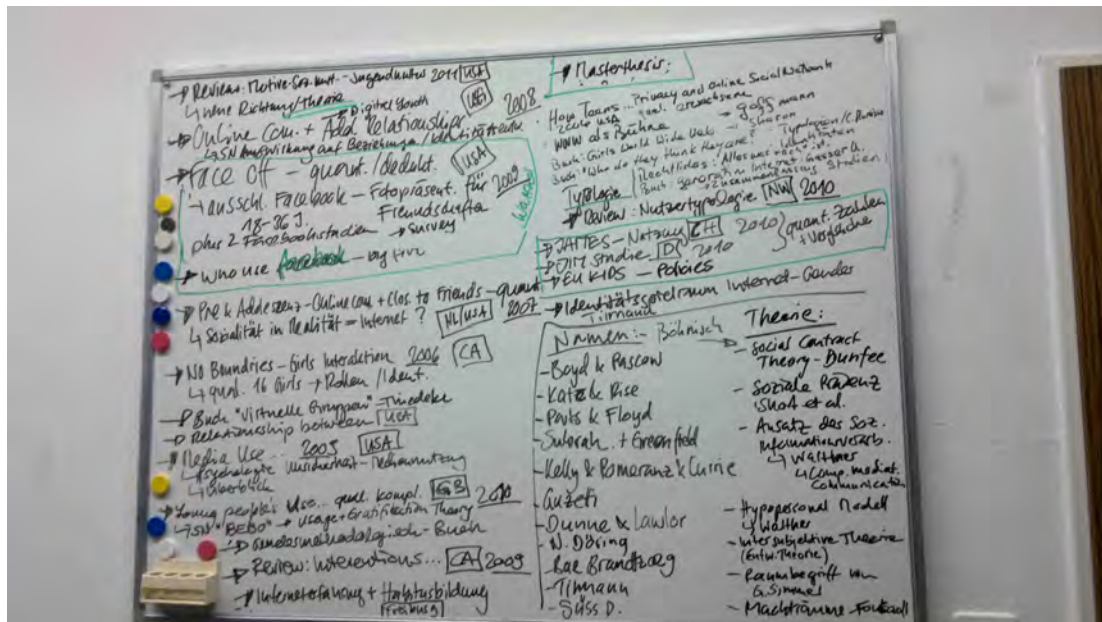 → Review: Motive-Soz. Netz. - Jugendkultur 2011 [USA]
↳ neue Richtung/Theorie
→ Digital Youth [USA]
→ Online Com. + Add. Relationships 2008
↳ SN Auswirkung auf Beziehungen / Identitätsentw.
→ Face Off - quant. / dedukt. [USA]
↳ ausschl. Facebook - Fotopräsent. für 2009
18-36 J. Freundschaften
plus 2 Facebookstudien → Survey
→ Who use facebook - big five
→ Pre & Addeszenz - Online com + Clos. to Friends - quant 2007
↳ Sozialität in Realität = Internet ? [NL/USA]
→ No Boundries - Girls Interaktion 2006 [CA]
↳ qual. 16 Girls → Rollen / Ident.
→ Buch "Virtuelle Gruppen" - Thiedeke
→ Relationship between [USA]
→ Media Use ... [USA]
↳ Psychologie Unsicherheit - Mediennutzung
↳ Überblick
→ Young people's Use... qual. kompl. [GB] 2010
↳ SN "BEBO" → Usage + Gratification Theory
→ Buch
→ Review: Interventions... [CA] 2009
→ Interneterfahrung + Habitusbildung
[Freiburg]
→ Masterthesis:
How Teens... Privacy and Online Social Network
USA qual.
• WWW als Bühne - goffmann
Buch: Girls World Wide Web - Sharon
Buch: "Who do they think they are?" - Typologien
Typologie
Rechtliches: "Alles was recht ist"
Buch: Generation Internet: Gasser U.
→ Zusammenfassung Studien
→ Review: Nutzertypologie [NW] 2010
→ JAMES - Nutzung [CH] 2010
→ JIM Studie [D] 2010
} quant. Zahlen + Vergleiche
→ EU KIDS - Policies
→ Identitätsspielraum Internet - Gender
Tilmann
Namen: - Böhnisch
- Boyd &
- Katz & Rise
- Parks & Floyd
- Subrah. + Greenfield
- Kelly & Pomeranz & Currie
- Dunne & Lawlor
- N. Döring
- Bae Brandtzaeg
- Tilmann
- Süss D.
Theorie:
- Social Contract
Theory - Dunfee
- Soziale Präsenz
Short et al.
- Ansatz der Soz.
Informationsverarb.
↳ Walther
↳ Comp. mediat.
Communication
- Hyperpersonal Modell
↳ Walther
- Intersubjektive Theorie
(Entw. Theorie)
- Raumbegriff von
G. Simmel
- Machträume - Foucault